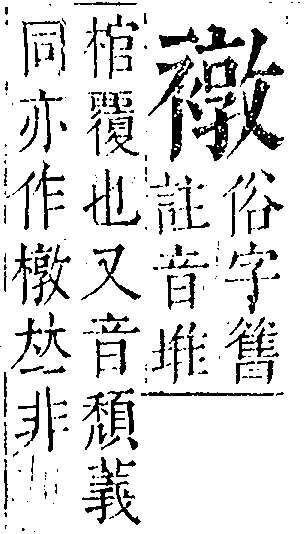 俗字舊
註音堆
棺覆也又音頹義
同亦作橔𠀤非